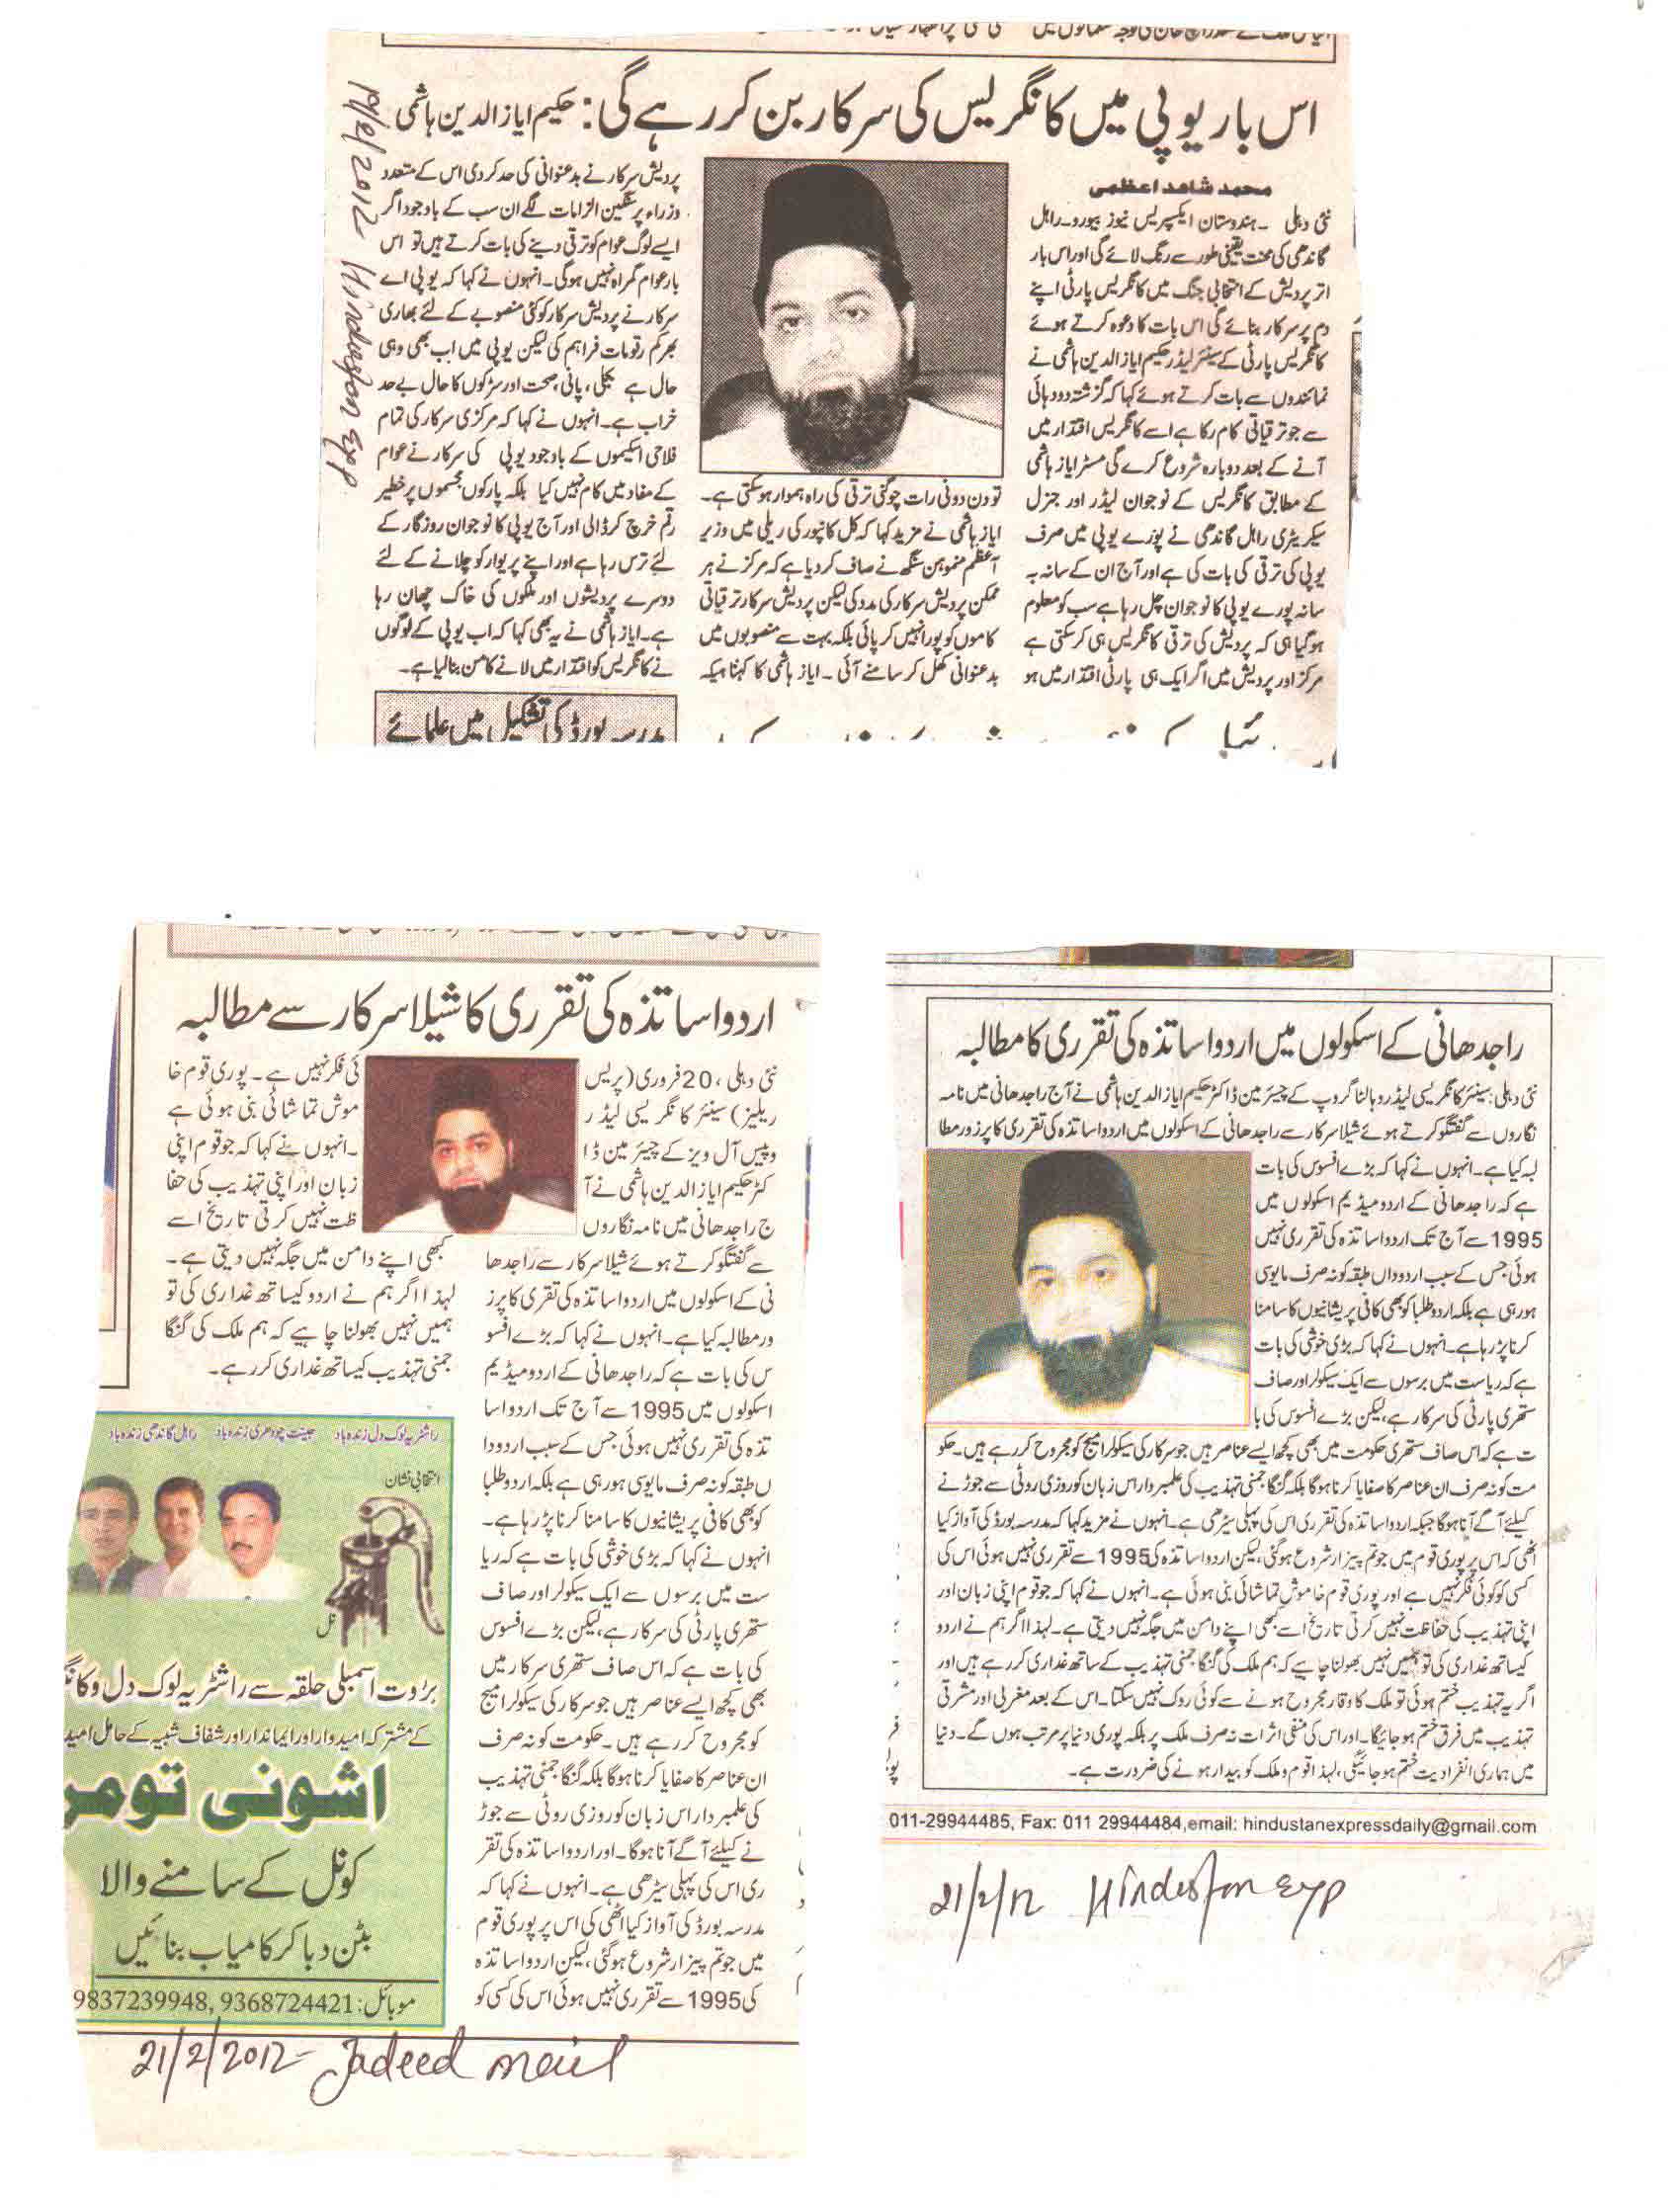 اس بار یوپی میں کانگریس کی سرکار بن کر رہے گی: حکیم ایاز الدین ہاشمی
محمد شاہد اعظمی
نئی دہلی ۔ ہندوستان ایکسپریس نیوز بیورو۔ راہل
گاندھی کی محنت یقینی طور سے رنگ لائے گی اور اس بار
اتر پردیش کے انتخابی جنگ میں کانگریس پارٹی اپنے
دم پر سرکار بنائے گی اس بات کا دعوہ کرتے ہوئے
کانگریس پارٹی کے سینئر لیڈر حکیم ایاز الدین ہاشمی نے
نمائندوں سے بات کرتے ہوئے کہا کہ گزشتہ دو دہائی
سے جو ترقیاتی کام رکا ہے اسے کانگریس اقتدار میں
آنے کے بعد دوبارہ شروع کرے گی مسٹر ایاز ہاشمی
کے مطابق کانگریس کے نوجوان لیڈر اور جنرل
سیکریٹری راہل گاندھی نے پورے یوپی میں صرف
یوپی کی ترقی کی بات کی ہے اور آج ان کے سانہ بہ
سانہ پورے یوپی کا نوجوان چل رہا ہے سب کو معلوم
ہو گیا ہی کہ پردیش کی ترقی کانگریس ہی کر سکتی ہے
مرکز اور پردیش میں اگر ایک ہی پارٹی اقتدار میں ہو
تو دن دونی رات چوگنی ترقی کی راہ ہموار ہو سکتی ہے۔
ایاز ہاشمی نے مزید کہا کہ کل کانپور کی ریلی میں وزیر
اعظم منموہن سنگھ نے صاف کر دیا ہے کہ مرکز نے ہر
ممکن پردیش سرکار کی مدد کی لیکن پردیش سرکار ترقیاتی
کاموں کو پورا نہیں کر پائی بلکہ بہت سے منصوبوں میں
بدعنوانی کھل کر سامنے آئی ۔ ایاز ہاشمی کا کہنا ہیکہ
پردیش سرکار نے بدعنوانی کی حد کر دی اس کے متعدد
وزراء پر سنگین الزامات لگے ان سب کے باوجود اگر
ایسے لوگ عوام کو ترقی دینے کی بات کرتے ہیں تو اس
بار عوام گمراہ نہیں ہوگی۔ انہوں نے کہا کہ یو پی اے
سرکار نے پردیش سرکار کو کئی منصوبے کے لئے بھاری
بھرکم رقومات فراہم کی لیکن یوپی میں اب بھی وہی
حال ہے بجلی، پانی، صحت اور سڑکوں کا حال بے حد
خراب ہے۔ انہوں نے کہا کہ مرکزی سرکار کی تمام
فلاحی اسکیموں کے باوجود یوپی کی سرکار نے عوام
کے مفاد میں کام نہیں کیا بلکہ پارکوں مجسموں پر خطیر
رقم خرچ کر ڈالی اور آج یوپی کا نوجوان روزگار کے
لئے ترس رہا ہے اور اپنے پریوار کو چلانے کے لئے
دوسرے پردیشوں اور ملکوں کی خاک چھان رہا
ہے۔ ایاز ہاشمی نے یہ بھی کہا کہ اب یوپی کے لوگوں
نے کانگریس کو اقتدار میں لانے کا من بنا لیا ہے۔
مدرسہ بورڈ کی تشکیل میں علمائے
/2/2012 Hindustan Exp
اردو اساتذہ کی تقرری کا شیلا سرکار سے مطالبہ
نئی دہلی ،20 فروری (پریس
ریلیز) سینئر کانگریسی لیڈر
و پیس آل ویز کے چیئرمین ڈا
کٹر حکیم ایاز الدین ہاشمی نے آ
ج راجدھانی میں نامہ نگاروں
سے گفتگو کرتے ہوئے شیلا سرکار سے راجدھا
نی کے اسکولوں میں اردو اساتذہ کی تقرری کا پرز
ور مطالبہ کیا ہے۔ انہوں نے کہا کہ بڑے افسو
س کی بات ہے کہ راجدھانی کے اردو میڈیم
اسکولوں میں 1995 سے آج تک اردو اسا
تذہ کی تقرری نہیں ہوئی جس کے سبب اردو دا
ں طبقہ کو نہ صرف مایوسی ہو رہی ہے بلکہ اردو طلبا
کو بھی کافی پریشانیوں کا سامنا کرنا پڑ رہا ہے۔
انہوں نے کہا کہ بڑی خوشی کی بات ہے کہ ریا
ست میں برسوں سے ایک سیکولر اور صاف
ستھری پارٹی کی سرکار ہے، لیکن بڑے افسوس
کی بات ہے کہ اس صاف ستھری سرکار میں
بھی کچھ ایسے عناصر ہیں جو سرکار کی سیکولر امیج
کو مجروح کر رہے ہیں ۔ حکومت کو نہ صرف
ان عناصر کا صفایا کرنا ہوگا بلکہ گنگا جمنی تہذیب
کی علمبردار اس زبان کو روزی روٹی سے جوڑ
نے کیلئے آگے آنا ہوگا۔ اور اردو اساتذہ کی تقر
ری اس کی پہلی سیڑھی ہے۔ انہوں نے کہا کہ
مدرسہ بورڈ کی آواز کیا اٹھی کی اس پر پوری قوم
میں جوتم پیزار شروع ہو گئی، لیکن اردو اساتذہ
کی 1995 سے تقرری نہیں ہوئی اس کی کسی کو
ئی فکر نہیں ہے۔ پوری قوم خا
موش تماشائی بنی ہوئی ہے
۔انہوں نے کہا کہ جو قوم اپنی
زبان اور اپنی تہذیب کی حفا
ظت نہیں کرتی تاریخ اسے
کبھی اپنے دامن میں جگہ نہیں دیتی ہے۔
لہذا اگر ہم نے اردو کیساتھ غداری کی تو
ہمیں نہیں بھولنا چاہیے کہ ہم ملک کی گنگا
جمنی تہذیب کیساتھ غداری کر رہے۔
راشٹریہ لوک دل زندہ باد جینت چودھری زندہ باد راہل گاندھی زندہ باد
انتخابی نشان
نل
بڑوت اسمبلی حلقہ سے راشٹریہ لوک دل و
کے مشترکہ امیدوار اور ایماندار اور شفاف شبیہ کے حامل
اشونی تومر
کو نل کے سامنے والا
بٹن دبا کر کامیاب بنائیں
موبائل: 9837239948, 9368724421
21/2/2012- Jadeed mail
راجدھانی کے اسکولوں میں اردو اساتذہ کی تقرری کا مطالبہ
نئی دہلی: سینئر کانگریسی لیڈر و ہالنا گروپ کے چیئرمین ڈاکٹر حکیم ایاز الدین ہاشمی نے آج راجدھانی میں نامہ
نگاروں سے گفتگو کرتے ہوئے شیلا سرکار سے راجدھانی کے اسکولوں میں اردو اساتذہ کی تقرری کا پرزور مطا
لبہ کیا ہے۔ انہوں نے کہا کہ بڑے افسوس کی بات
ہے کہ راجدھانی کے اردو میڈیم اسکولوں میں
1995 سے آج تک اردو اساتذہ کی تقرری نہیں
ہوئی جس کے سبب اردو داں طبقہ کو نہ صرف مایوسی
ہو رہی ہے بلکہ اردو طلبا کو بھی کافی پریشانیوں کا سامنا
کرنا پڑ رہا ہے۔ انہوں نے کہا کہ بڑی خوشی کی بات
ہے کہ ریاست میں برسوں سے ایک سیکولر اور صاف
ستھری پارٹی کی سرکار ہے، لیکن بڑے افسوس کی با
ت ہے کہ اس صاف ستھری حکومت میں بھی کچھ ایسے عناصر ہیں جو سرکار کی سیکولر امیج کو مجروح کر رہے ہیں۔ حکو
مت کو نہ صرف ان عناصر کا صفایا کرنا ہوگا بلکہ گنگا جمنی تہذیب کی علمبردار اس زبان کو روزی روٹی سے جوڑنے
کیلئے آگے آنا ہوگا جبکہ اردو اساتذہ کی تقرری اس کی پہلی سیڑھی ہے۔ انہوں نے مزید کہا کہ مدرسہ بورڈ کی آواز کیا
اٹھی کہ اس پر پوری قوم میں جوتم پیزار شروع ہو گئی، لیکن اردو اساتذہ کی 1995 سے تقرری نہیں ہوئی اس کی
کسی کو کوئی فکر نہیں ہے اور پوری قوم خاموش تماشائی بنی ہوئی ہے۔ انہوں نے کہا کہ جو قوم اپنی زبان اور
اپنی تہذیب کی حفاظت نہیں کرتی تاریخ اسے کبھی اپنے دامن میں جگہ نہیں دیتی ہے۔ لہذا اگر ہم نے اردو
کیساتھ غداری کی تو ہمیں نہیں بھولنا چاہیے کہ ہم ملک کی گنگا جمنی تہذیب کے ساتھ غداری کر رہے ہیں اور
اگر یہ تہذیب ختم ہوئی تو ملک کا وقار مجروح ہونے سے کوئی روک نہیں سکتا۔ اس کے بعد مغربی اور مشرقی
تہذیب میں فرق ختم ہو جائیگا۔ اور اس کی منفی اثرات نہ صرف ملک پر بلکہ پوری دنیا پر مرتب ہوں گے۔ دنیا
میں ہماری انفرادیت ختم ہو جائیگی، لہذا قوم و ملک کو بیدار ہونے کی ضرورت ہے۔
011-29944485, Fax: 011 29944484,email: hindustanexpressdaily@gmail.com
21/2/12 Hindustan Exp